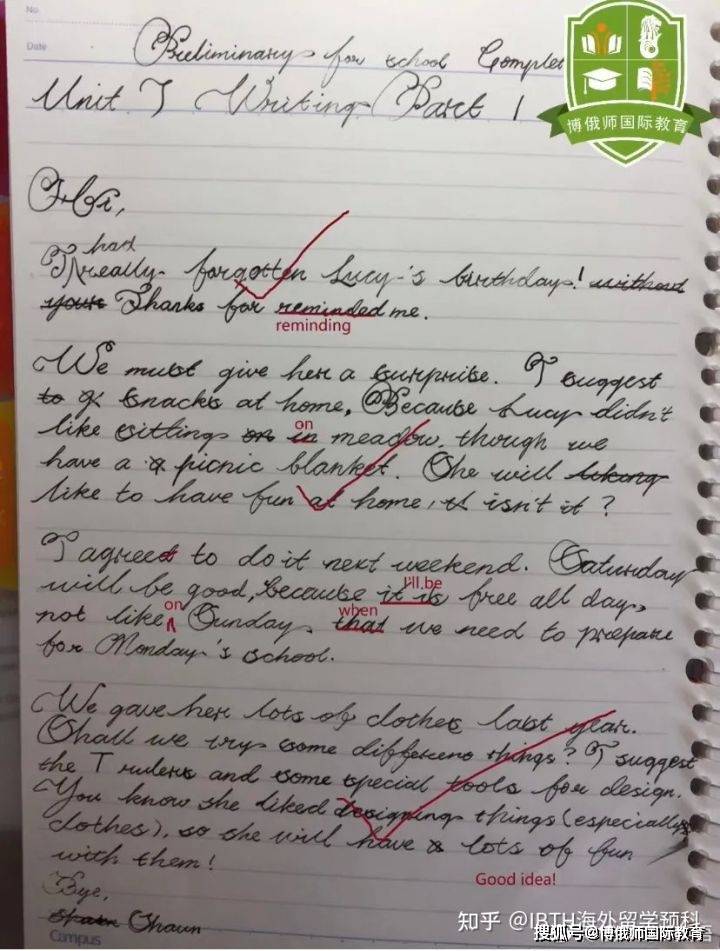 No.
Date
Preliminary for school Complet
博俄师国际教育
Unit 7 Writing Part 1
Hi,
had
I really forgotten Lucy's birthday! without
your Thanks for reminded me.
reminding
We must give her a surprise. I suggest
to snacks at home, Because Lucy didn't
on
like sitting on in meadow, though we
have a picnic blanket. She will liking
like to have fun at home, isn't it?
I agreed to do it next weekend. Saturday
I'll be
will be good, because it is free all day,
on when
not like Sunday that we need to prepare
for Monday's school.
We gave her lots of clothes last year.
Shall we try some different things? I suggest
the T rulers and some special tools for design.
You know she liked designing things (especially
clothes), so she will have lots of fun
with them!
Good idea!
Bye,
Shaun
Campus
知乎 @IBTH海外留学预科
搜狐号@博俄师国际教育